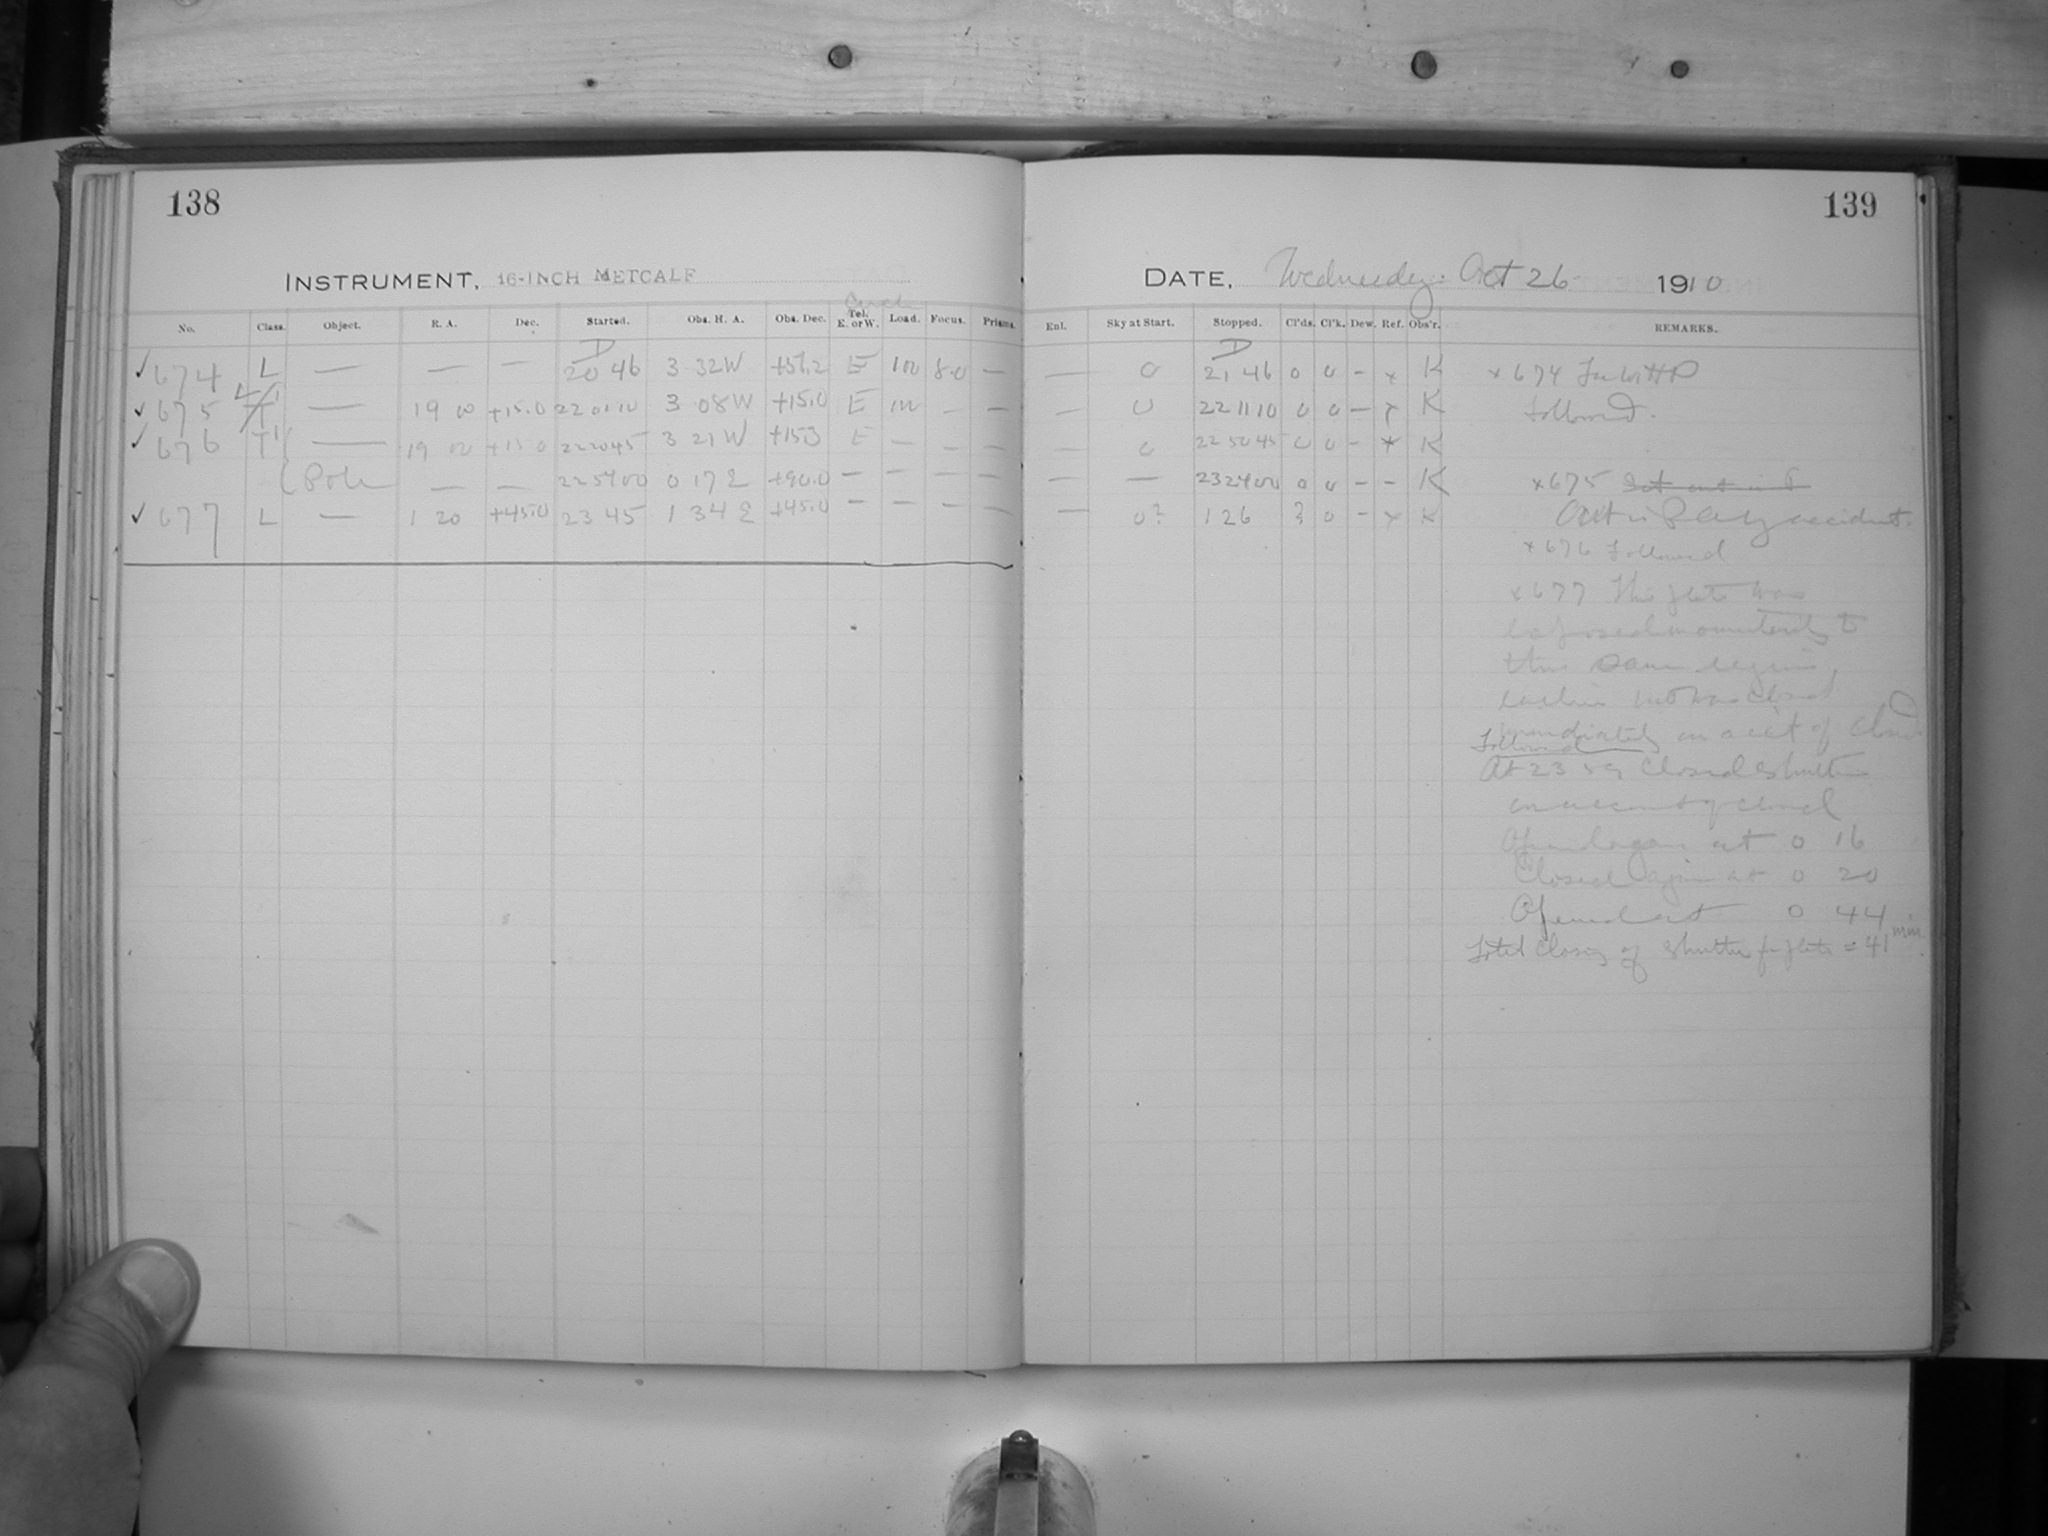 138
139
INSTRUMENT, 16-INCH METCALF
DATE, Wednesday: Oct 26 1910
No. Class. Object. R. A. Dec. Started. Obs. H. A. Obs. Dec. Tel. E. or W. Load. Focus. Prisms. Enl. Sky at Start. Stopped. Cl'ds. Cl'k. Dew. Ref. Obs'r. REMARKS.
✓ 674 L — — — 20 46 3 32W E 100 8.0 — — 0 21 46 0 0 - x K x 674
✓ 675 — 19 00 +15.0 22 01 10 3 08W +15.0 E — — — 0 22 11 10 0 0 — x K Followed.
✓ 676 T — 19 00 +15 0 22 20 45 3 21 W E — — — — 0 22 50 45 0 0 - x K
Pole — — 22 54 00 0 17 E +90.0 — — — — — — 23 24 00 0 0 - - K x 675
✓ 677 L — 1 20 +45.0 23 45 1 34 E +45.0 — — — — — 0? 1 26 ? 0 - x K Out in by accident.
x 676 Followed
x 677 This plate was
exposed momentarily to
this same region
earlier was closed
immediately on acct of cloud
Followed
At 23 59 Closed shutter
on account of cloud
Opened again at 0 16
Closed again at 0 20
Opened at 0 44
Total closing of shutter for plate = 41 min.